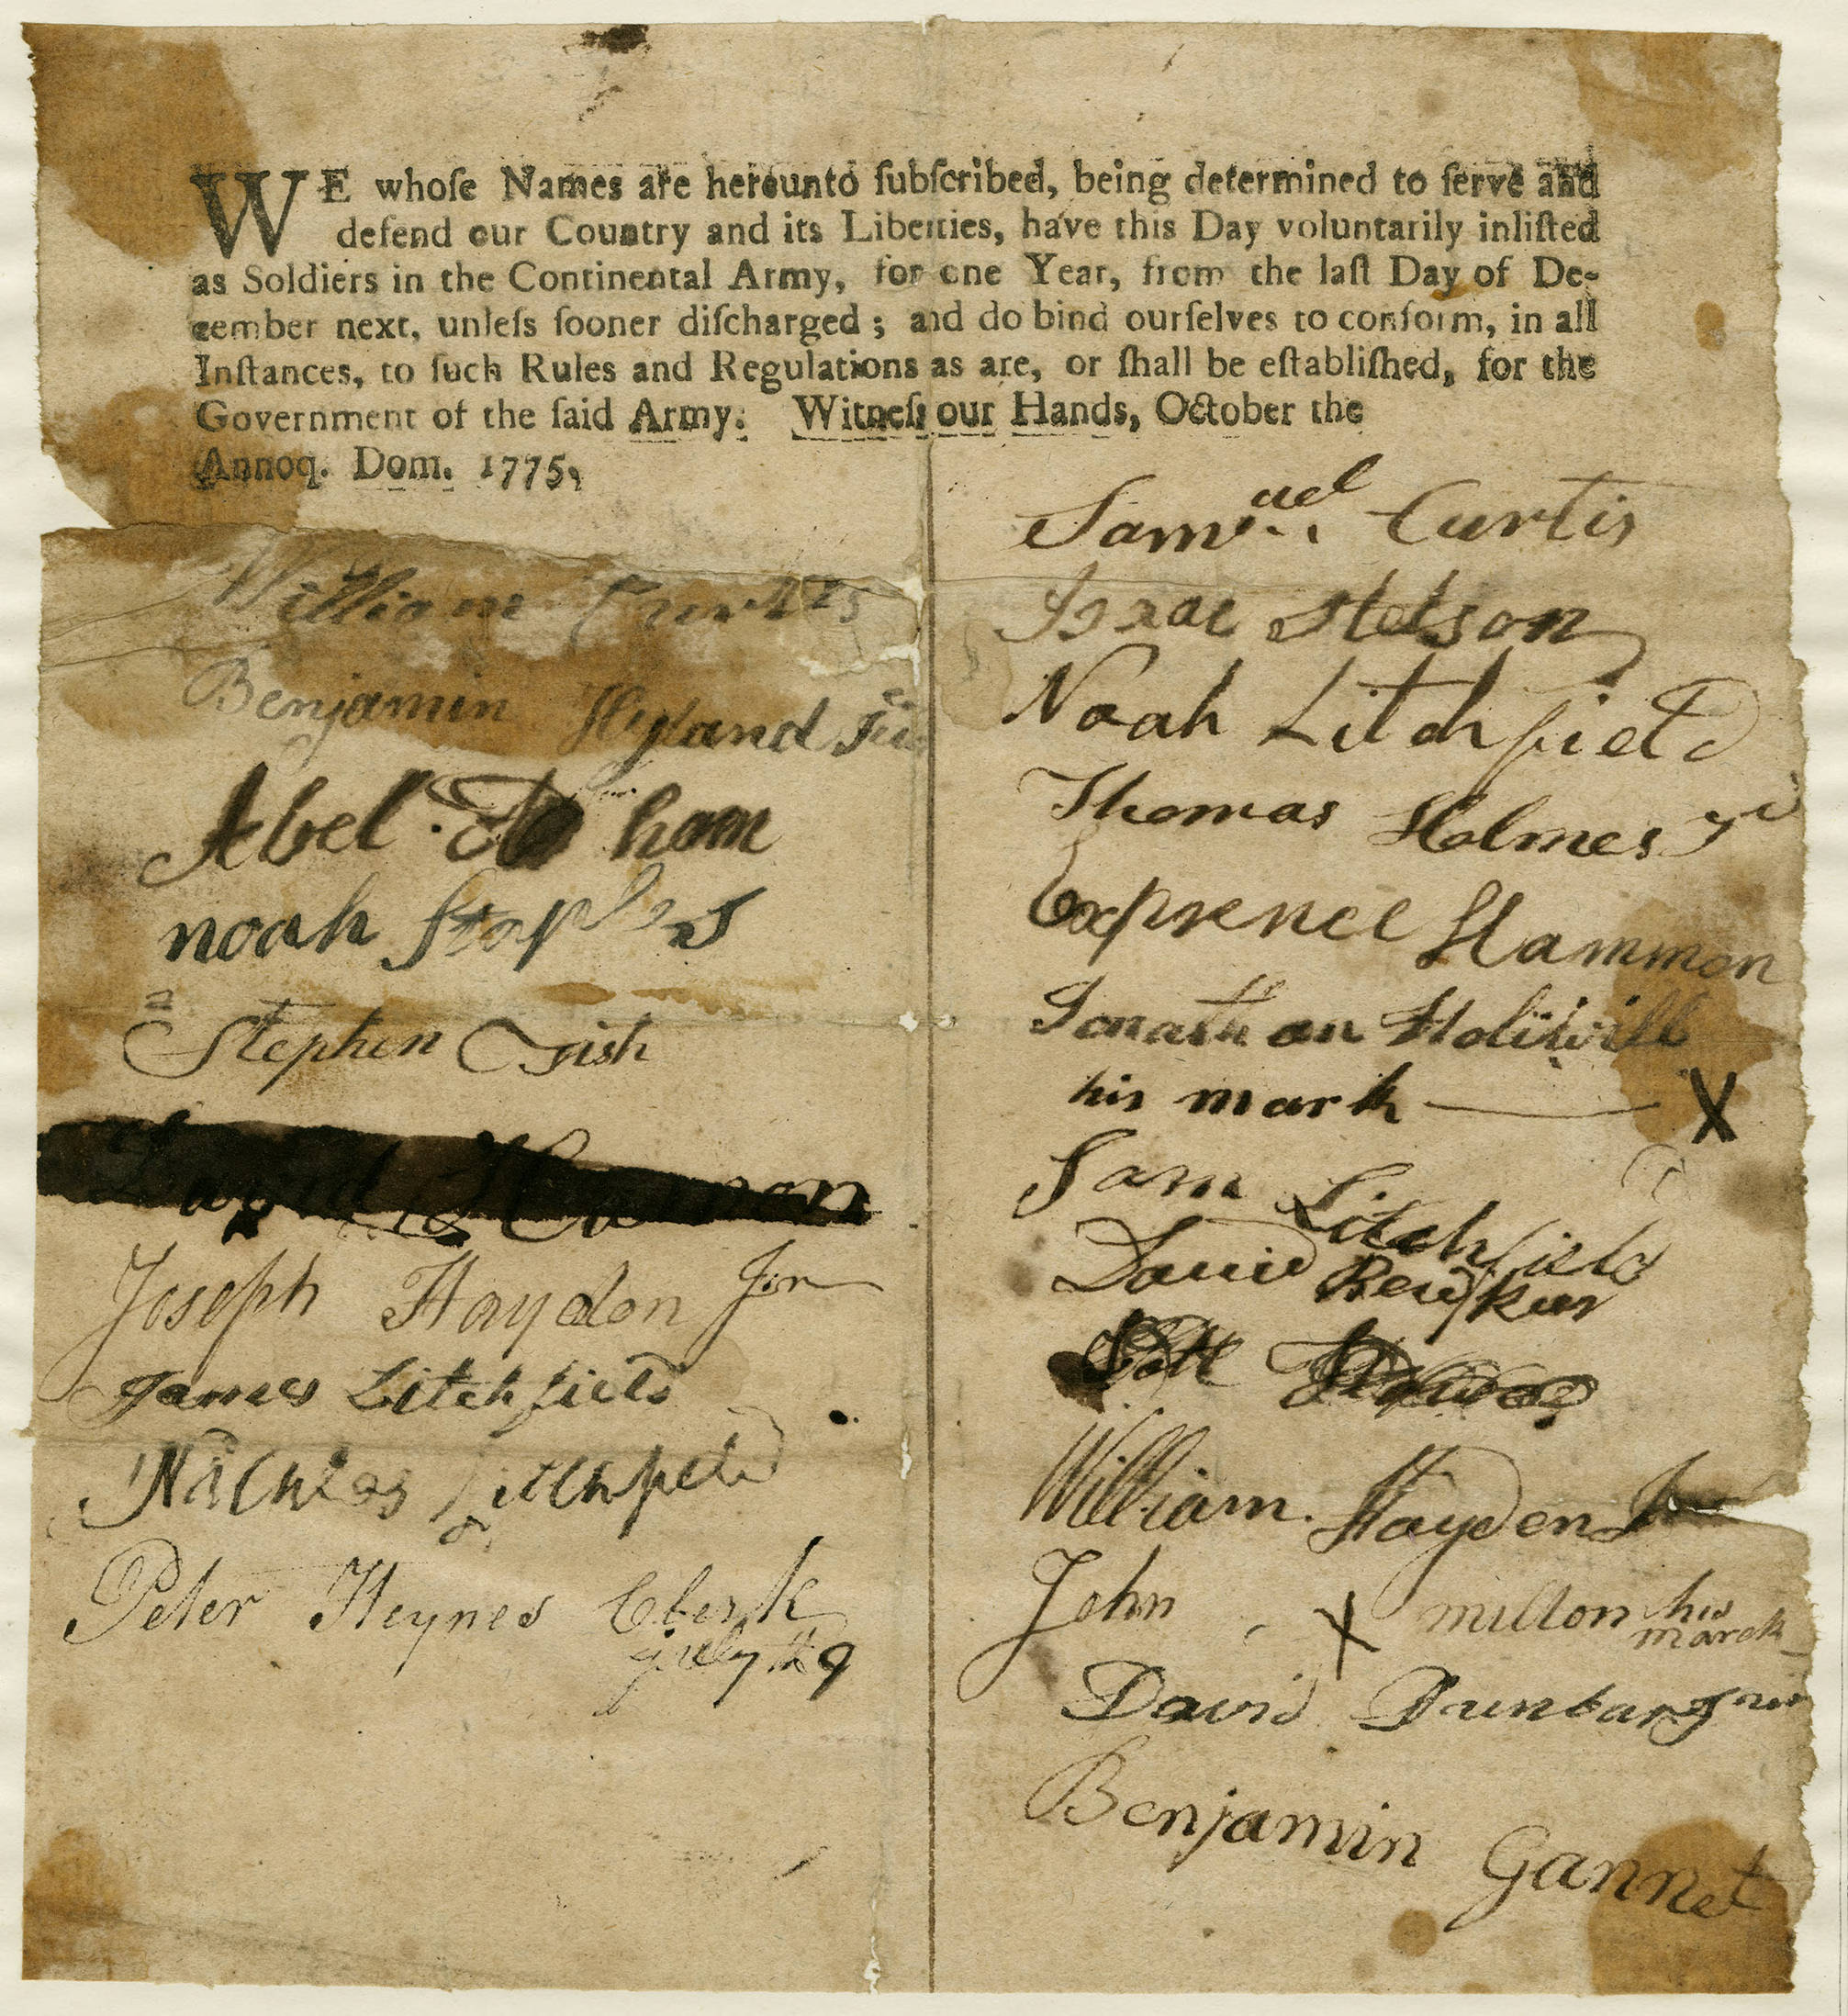 WE whoſe Names are hereunto ſubſcribed, being determined to ſerve and
defend our Country and its Liberties, have this Day voluntarily inliſted
as Soldiers in the Continental Army, for one Year, from the laſt Day of De-
cember next, unleſs ſooner diſcharged; and do bind ourſelves to conform, in all
Inſtances, to ſuch Rules and Regulations as are, or ſhall be eſtabliſhed, for the
Government of the ſaid Army. Witneſs our Hands, October the
Annoq. Dom. 1775,
William Curtis
Benjamin Hyland Jur
Abel ham
noah staples
Stephen Tish
David
Joseph Haydon Jnr
James Litchfield
Litchfield
Peter Heynes Clerk
july 29
Samuel Curtis
Isaac Stetson
Noah Litchfield
Thomas Holmes
Exprence Hammon
Jonathan Holiwill
his mark X
Sam Litchfield
David
William Hayden Jnr
John X milton his
marck
David Dunbar Junr
Benjamin Gannet